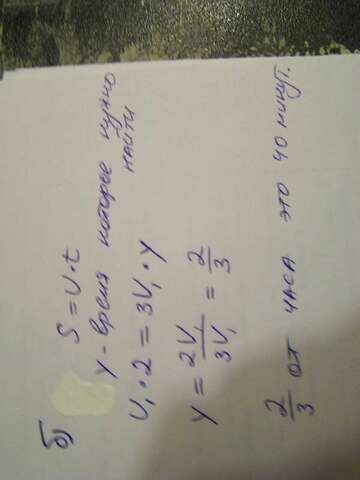 б) S = U · t
Y - время которое нужно
найти
U₁ · 2 = 3U₁ · Y
Y = 2U₁/3U₁ = 2/3
2/3 от часа это 40 минут.